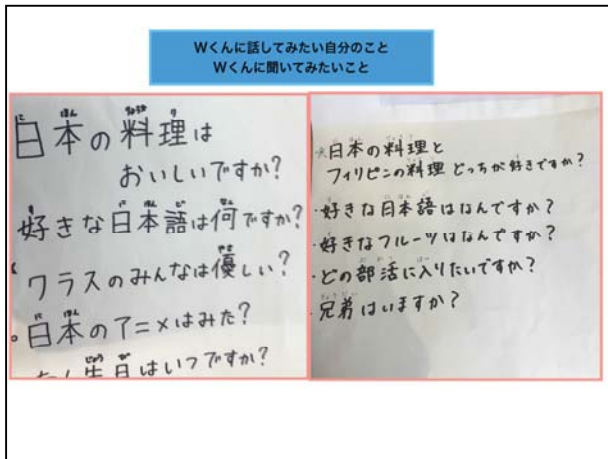 Wくんに話してみたい自分のこと
Wくんに聞いてみたいこと
日本の料理は
おいしいですか?
好きな日本語は何ですか?
クラスのみんなは優しい?
日本のアニメはみた?
生日はいつですか?
日本の料理と
フィリピンの料理 どっちが好きですか?
・好きな日本語はなんですか?
・好きなフルーツはなんですか?
・どの部活に入りたいですか?
・兄弟はいますか?